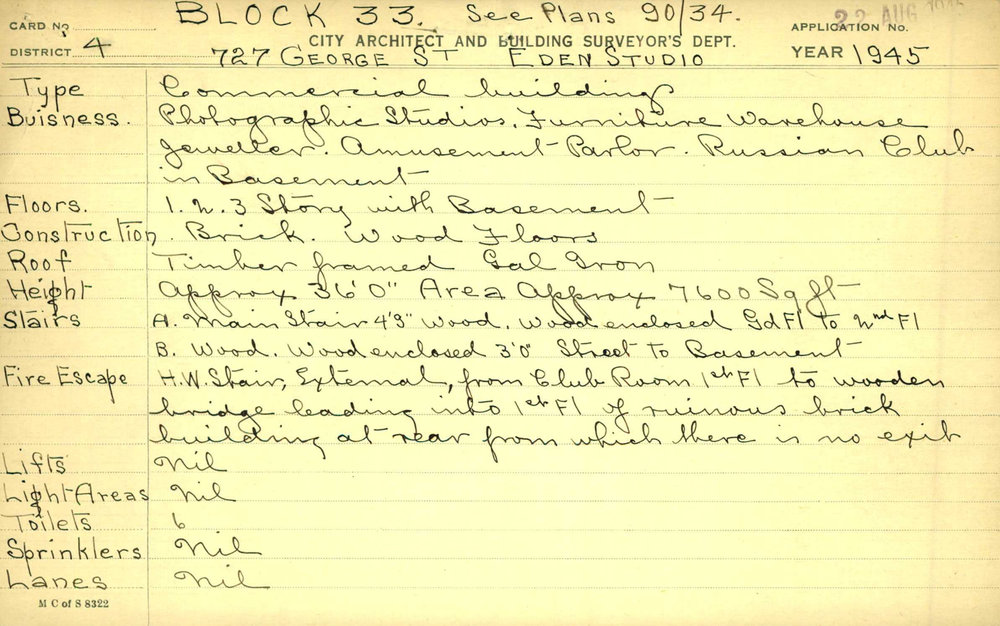 BLOCK 33. See Plans 90/34.
22 AUG 1945
CARD No.
CITY ARCHITECT AND BUILDING SURVEYOR'S DEPT.
APPLICATION No.
DISTRICT 4
727 GEORGE ST EDEN STUDIO
YEAR 1945
Type Commercial building
Buisness. Photographic Studios. Furniture Warehouse
Jeweller. Amusement Parlor. Russian Club
in Basement
Floors. 1. 2. 3 Story with Basement
Construction. Brick. Wood Floors
Roof Timber framed Gal Iron
Height Approx 36'0" Area Approx 7600 Sq ft
Stairs A. Main Stair 4'3" Wood. Wood enclosed Gd Fl to 2nd Fl
B. Wood. Wood enclosed 3'0" Street to Basement
Fire Escape H.W. Stair, External, from Club Room 1st Fl to wooden
bridge leading into 1st Fl of ruinous brick
building at rear from which there is no exit
Lifts Nil
Light Areas Nil
Toilets 6
Sprinklers Nil
Lanes Nil
M C of S 8322